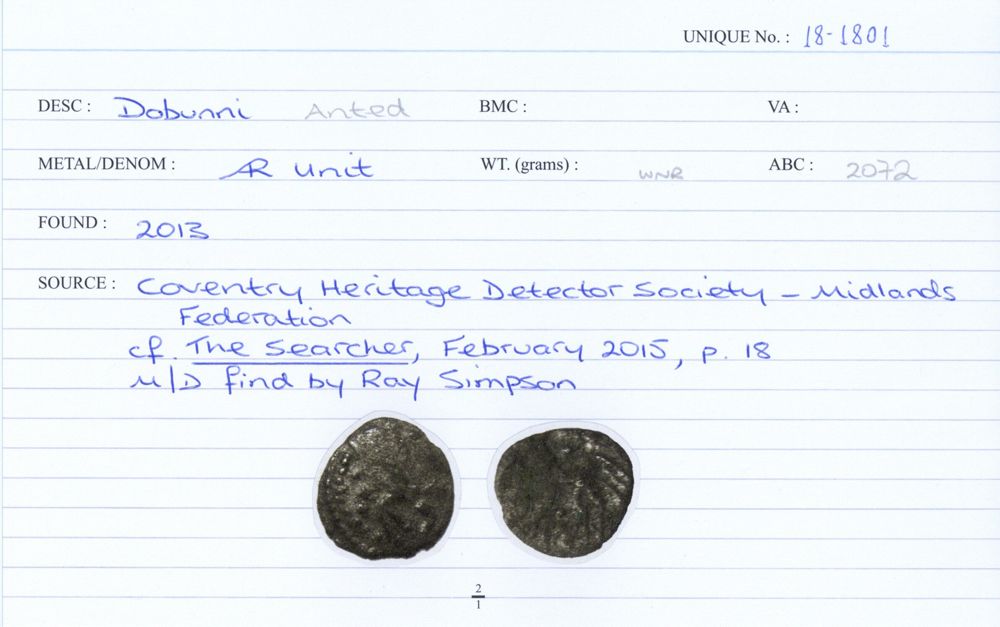 UNIQUE No. : 18-1801
DESC : Dobunni Anted BMC : VA :
METAL/DENOM : AR unit WT. (grams) : WNR ABC : 2072
FOUND : 2013
SOURCE : Coventry Heritage Detector Society - Midlands
Federation
cf. The Searcher, February 2015, p. 18
M/D find by Ray Simpson
2
1